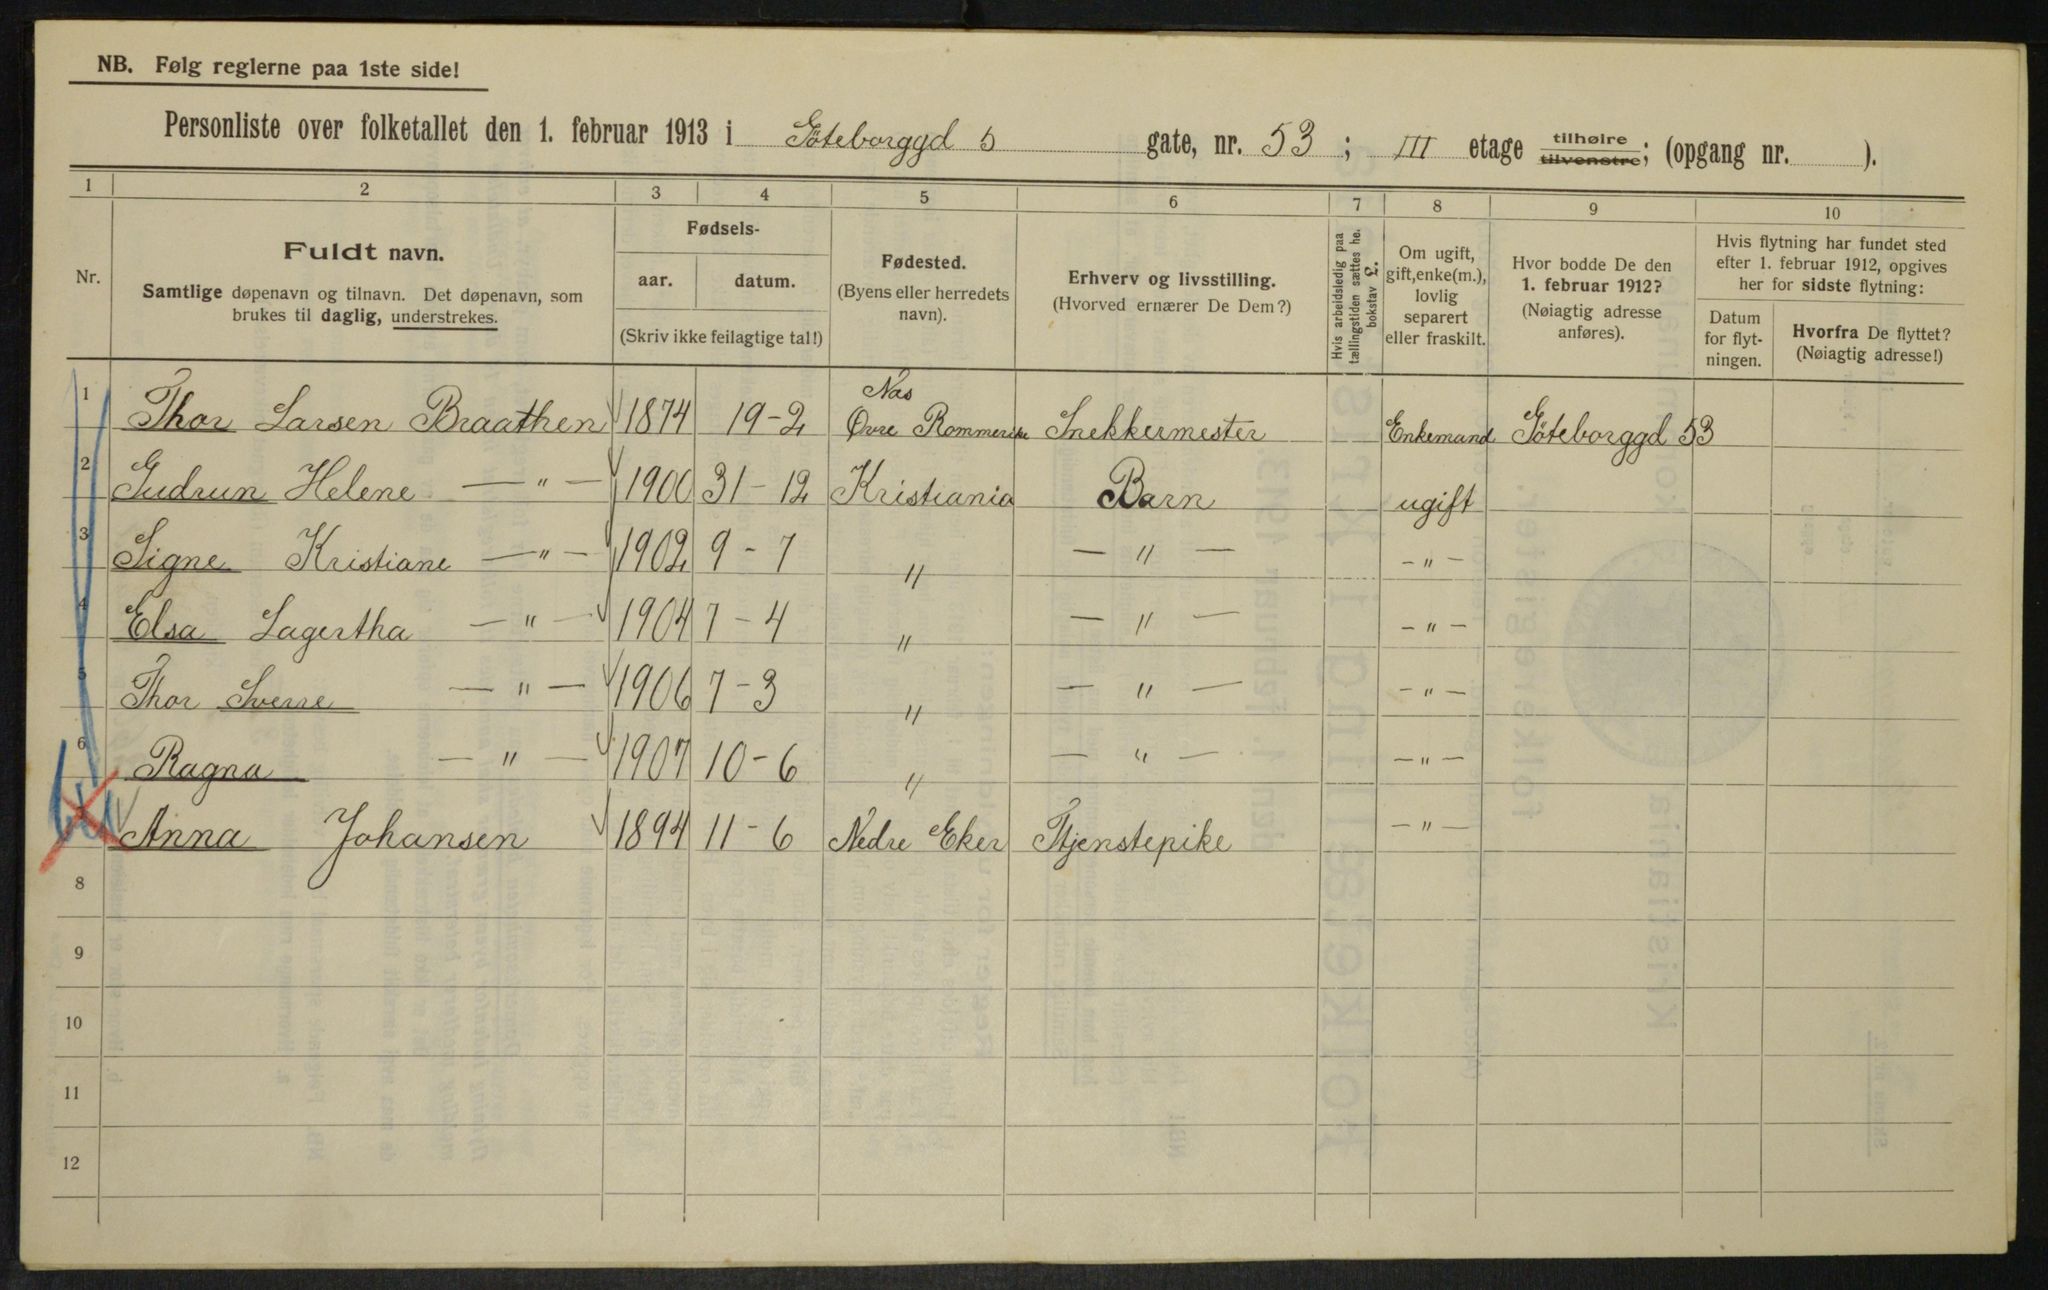 NB. Følg reglerne paa 1ste side!
Personliste over folketallet den 1. februar 1913 i Göteborggd 5 gate, nr. 53 ; III etage tilhøire tilvenstre; (opgang nr. ).
1 2 3 4 5 6 7 8 9 10
Nr.
Fuldt navn.
Samtlige døpenavn og tilnavn. Det døpenavn, som
brukes til daglig, understrekes.
Fødsels-
aar. datum.
(Skriv ikke feilagtige tal!)
Fødested.
(Byens eller herredets
navn).
Erhverv og livsstilling.
(Hvorved ernærer De Dem?)
Hvis arbeidsledig paa
tællingstiden sættes he.
bokstav L.
Om ugift,
gift, enke(m.),
lovlig
separert
eller fraskilt.
Hvor bodde De den
1. februar 1912?
(Nøiagtig adresse
anføres).
Hvis flytning har fundet sted
efter 1. februar 1912, opgives
her for sidste flytning:
Datum
for flyt-
ningen.
Hvorfra De flyttet?
(Nøiagtig adresse!)
Nas
1 Thor Larsen Braathen 1874 19-2 Øvre Romerike Snekkermester Enkemand Göteborggd 53
2 Gudrun Helene — " — 1900 31-12 Kristiania Barn ugift
3 Signe Kristiane — " — 1902 9-7 " — " — — " —
4 Elsa Lagertha — " — 1904 7-4 " — " — — " —
5 Thor Sverre — " — 1906 7-3 " — " — — " —
6 Ragna — " — 1907 10-6 " — " — — " —
7 Anna Johansen 1894 11-6 Nedre Eker Tjenstepike — " —
8
9
10
11
12